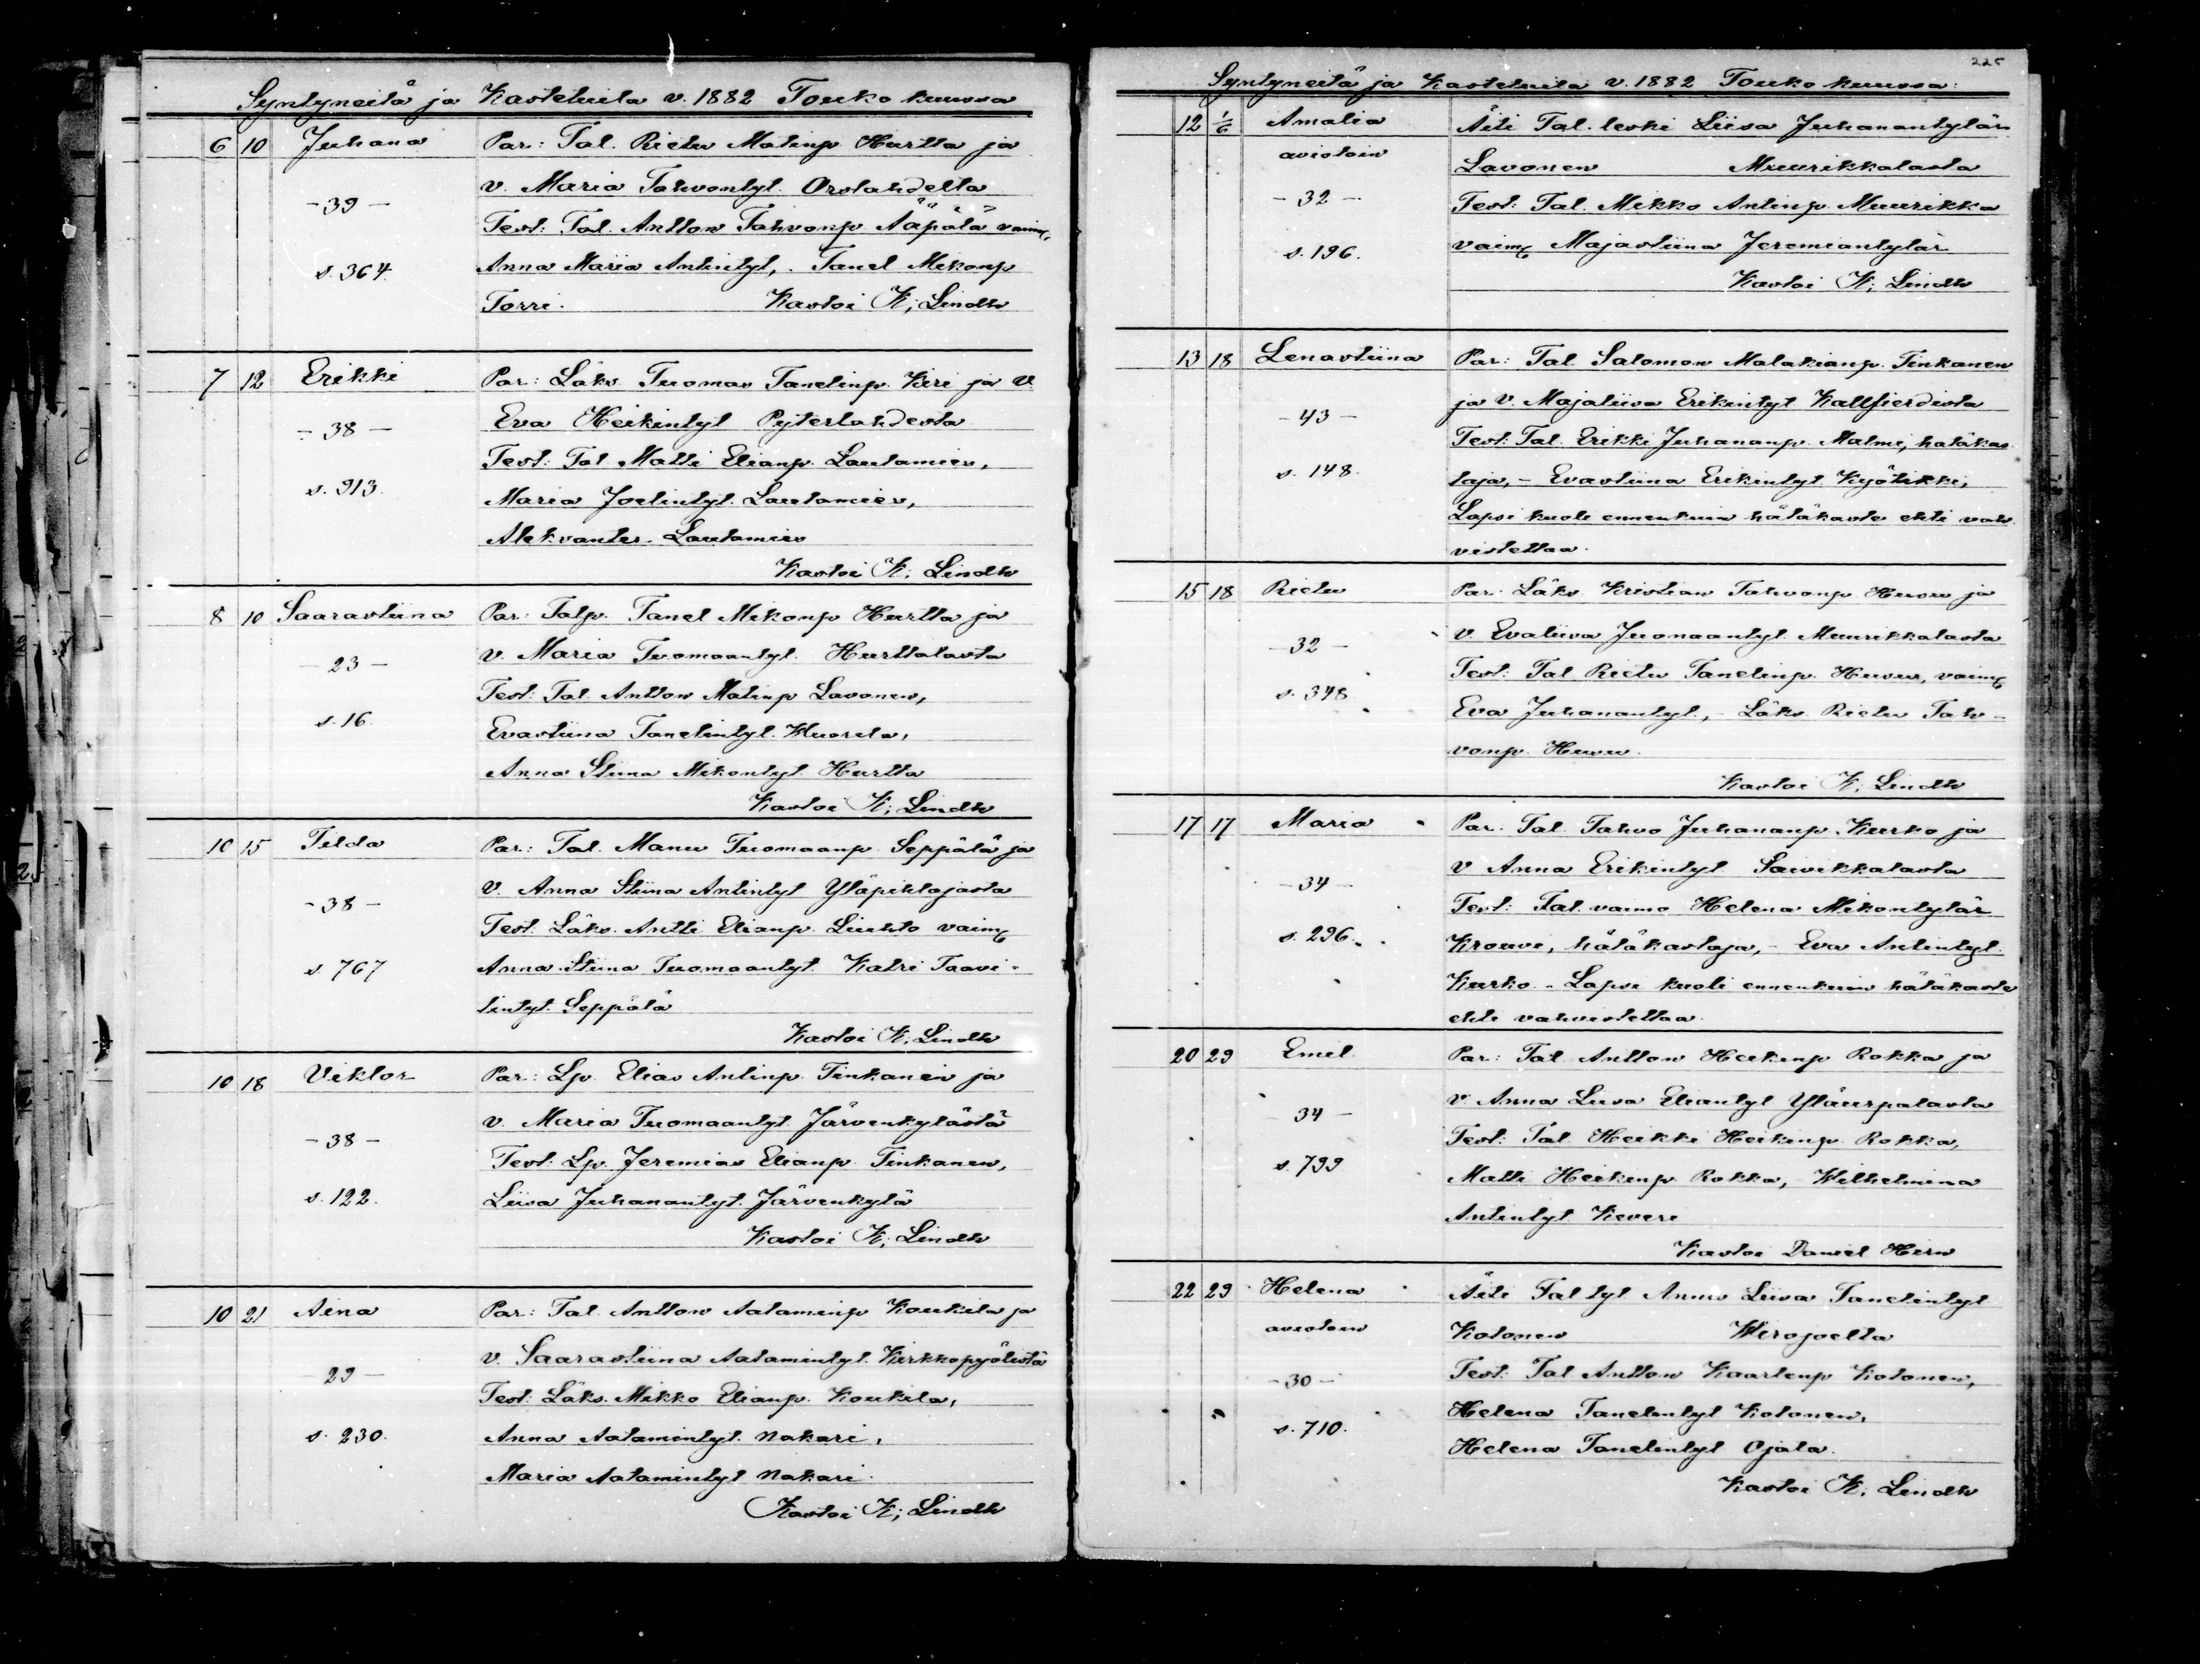 Syntyneitä ja Kastetuita v. 1882 Touko kuussa
6 10 Juhana Par: Tal. Rietu Matinp. Hurtta ja
v. Maria Tahvontyt. Orslahdelta
- 39 -
Test: Tal. Anttow Tahvonp Ääpälä vaim.
s. 364. Anna Maria Antintyt, . Tanel Mikonp
Torri. Kastoi K; Lindh
7 12 Erikki Par: Läks. Tuomas Tanelinp. Kiri ja v.
- 38 - Eva Heikintyt Pyterlahdesta
Test: Tal. Matti Elianp. Lautamies,
s. 913. Maria Joelintyt. Lautamies,
Aleksanter Lautamies
Kastoi K; Lindh
8 10 Saarastiina Par: Talp. Tanel Mikonp Hurtta ja
- 23 - v. Maria Tuomaantyt. Hurttalasta
Test: Tal. Anttow Matinp Lavonen,
s. 16. Evastiina Tanelintyt. Wuorela,
Anna Stiina Mikontyt Hurtta
Kastoi K; Lindh
10 15 Tilda Par: Tal. Manu Tuomaanp. Seppälä ja
v. Anna Stiina Antintyt Yläpihlajasta
- 38 -
Test. Läks. Antti Elianp. Liuhto vaim.
s. 767 Anna Stiina Tuomaantyt. Katri Taavi-
tintyt. Seppälä
Kastoi K; Lindh
10 18 Viktor Par: Lp. Elias Antinp. Tinkanen ja
v. Maria Tuomaantyt. Järvenkylästä
- 38 -
Test: Lp. Jeremias Elianp. Tinkanen,
s. 122. Liisa Juhanantyt. Järvenkylä
Kastoi K; Lindh
10 21 Aina Par: Tal. Anttow Aataminp Koukila ja
v. Saarastiina Aatamintyt. Kirkkopyölistä
- 29 -
Test: Läks. Mikko Elianp. Koukila,
s. 230. Anna Aatamintyt. Nakari,
Maria Aatamintyt Nakari.
Kastoi K; Lindh
225
Syntyneitä ja Kastetuita v. 1882 Touko kuussa:
12 1/6 Amalia Äiti Tal. leski Liisa Juhanantytär
aviotoin Lavonen Muurikkalasta
- 32 - Test: Tal. Mikko Antinp. Muurikka
s. 196. vaim. Majastiina Jeremiantytär
Kastoi K; Lindh
13 18 Lenastiina Par: Tal. Salomon Malakianp. Tinkanen
- 43 - ja v. Majaliisa Erikintyt Kallfierdista
Test: Tal. Erikki Juhananp. Malmi, hätäkas
s. 148. taja, - Evastiina Erikintyt Kyötikki,
Lapsi kuoli ennenkuin hätäkaste ehti vah
vistettaa.
15 18 Rietu Par: Läks. Kristian Tahvonp. Husu ja
- 32 - v. Evaliisa Juonaantyt. Muurikkalasta
Test: Tal Rietu Tanelinp. Husu, vaim.
s. 348 Eva Juhanantyt., - Läks. Rietu Tah-
vonp. Husu.
Kastoi K; Lindh
17 17 Maria Par: Tal. Tahvo Juhananp. Kurko ja
- 34 - v Anna Erikintyt Saivikkalasta
Test: Tal. vaimo Helena Mikontytär
s. 296. Krouvi, hätäkastaja, - Eva Antintyt.
Kurko. - Lapsi kuoli ennenkuin hätäkaste
ehti vahvistettaa.
20 29 Emil. Par: Tal. Anttow Heikinp Rokka ja
34 - v. Anna Liisa Eliantyt Yläurpalasta
Test: Tal. Heikki Heikinp. Rokka,
s. 799 Matti Heikinp. Rokka, Wilhelmina
Antintyt Keveri
Kastoi Daniel Hirn
22 29 Helena Äiti Tal tyt Anna Liisa Tanelintyt
aviotoin Kotonen Wirojoelta
- 30 - Test: Tal Anttow Kaarlenp Kotonen,
s. 710. Helena Tanelintyt Kotonen,
Helena Tanelintyt Ojala.
Kastoi K; Lindh